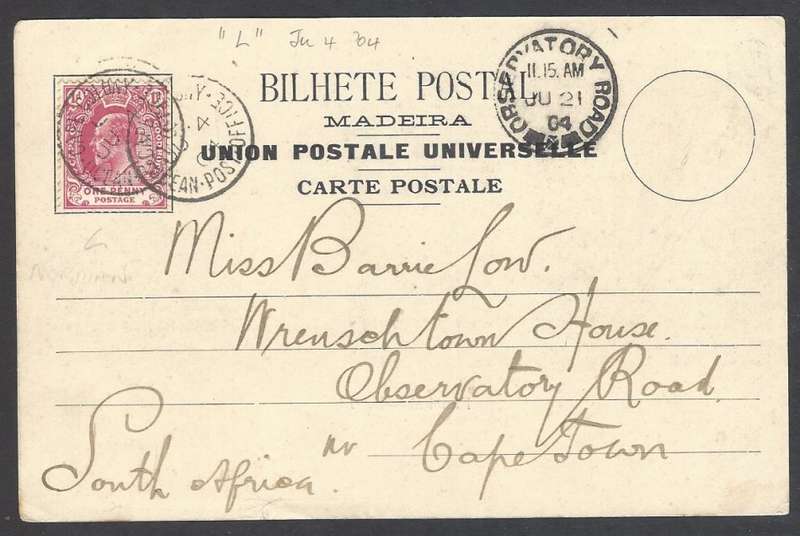 "L" Ju 4 04
BILHETE POSTAL
MADEIRA
UNION POSTALE UNIVERSELLE
CARTE POSTALE
ONE PENNY
POSTAGE
OCEAN·POST OFFICE·
OBSERVATORY ROAD
11.15. AM
JU 21
04
Miss Barrie Low.
Wrenschtown House.
Observatory Road.
nr Cape Town
South Africa.